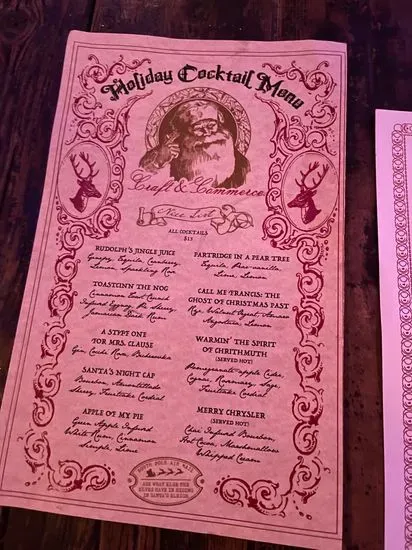 Holiday Cocktail Menu
Craft & Commerce
Nice List
ALL COCKTAILS
$15
RUDOLPH'S JINGLE JUICE
Tequila, Cranberry,
Lemon, Sparkling
TOASTCINN THE NOG
Cinnamon Toast Crunch
Infused Eggnog,
Jamaican
A STIFF ONE
FOR MRS. CLAUSE
Gin,
SANTA'S NIGHT CAP
Bourbon, Amontillado
Sherry, Fruitcake Cordial
APPLE OF MY PIE
Green Apple Infused
White Rum, Cinnamon
Simple, Lime
PARTRIDGE IN A PEAR TREE
Tequila, Pear-vanilla
Lime
CALL ME FRANCIS: THE
GHOST OF CHRISTMAS PAST
Rye, Walnut Amaro
Lemon
WARMIN' THE SPIRIT
OF CHRITHMUTH
(SERVED HOT)
Pomegranate apple Cider,
Cognac, Rosemary, Sage,
Fruitcake Cordial
MERRY CHRYSLER
(SERVED HOT)
Chai Infused Bourbon,
Hot Cocoa, Marshmallow
Whipped Cream
SOUTH POLE AIR MAIL
ASK WHAT ELSE THE
ELVES HAVE IN HIDING
IN SANTA'S SLEIGH